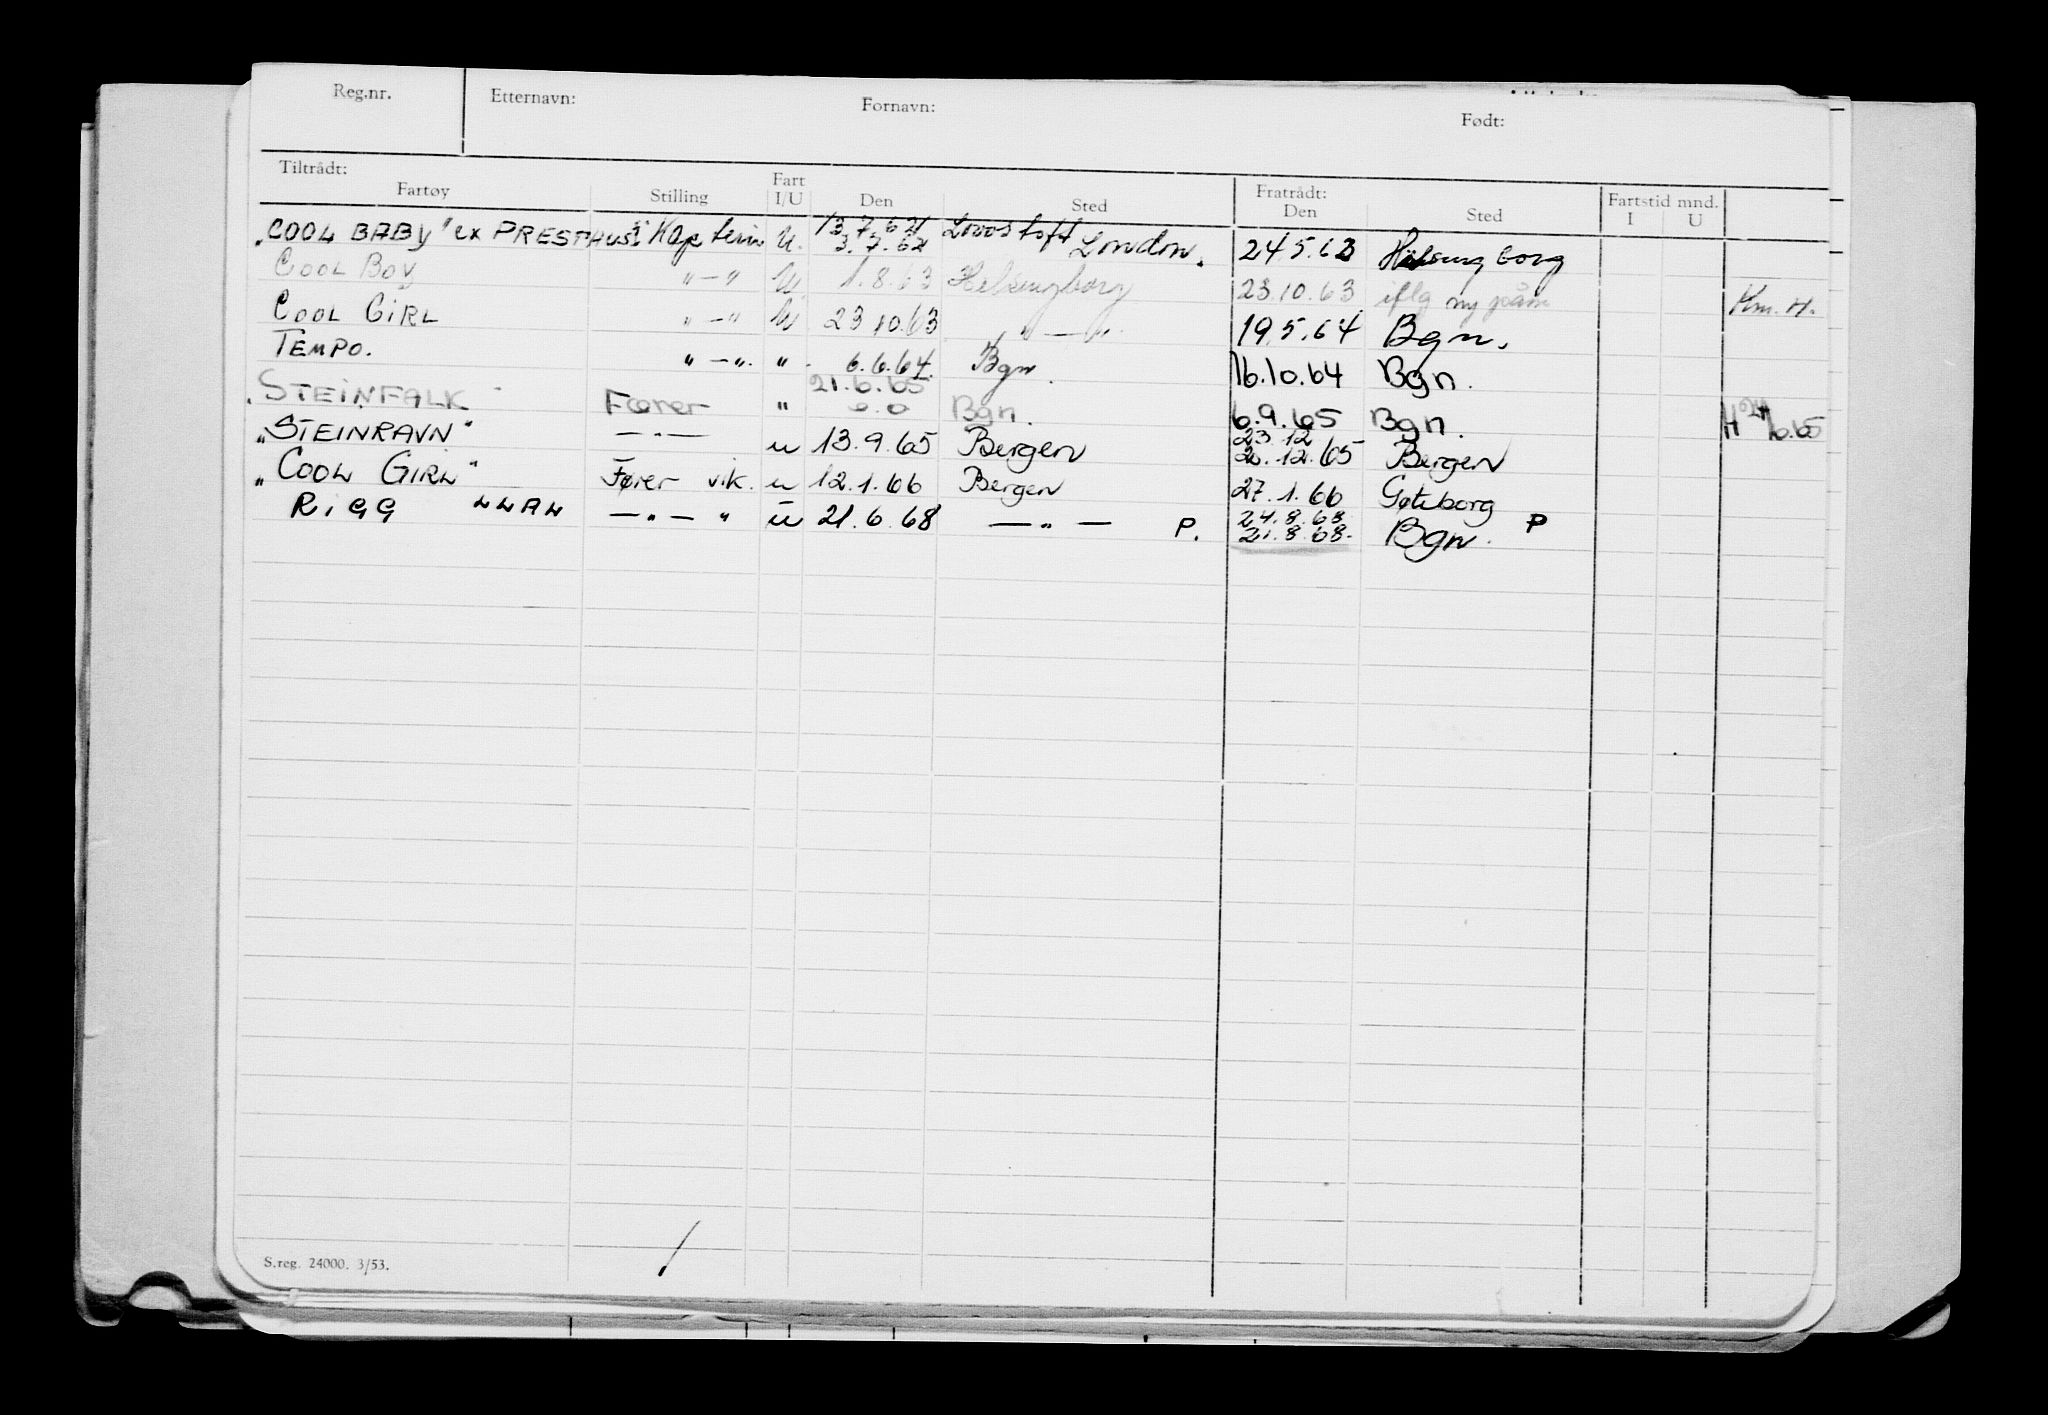 Reg.nr. Etternavn: Fornavn: Født:
Tiltrådt: Fratrådt:
Fartøy Stilling Fart I/U Den Sted Den Sted Fartstid mnd. I U
"COOL BABY" ex PRESTHUS Kaptein U. 3.7.62 London. 24.5.63 Helsingborg
COOL BOY "-" U 1.8.63 Helsingborg 23.10.63 iflg ny påm Km. H.
COOL GIRL "-" U 23.10.63 "-" 19.5.64 Bgn.
TEMPO. "-". ". 6.6.64. Bgn. 16.10.64 Bgn.
21.6.65
STEINFALK Fører " Bgn. 6.9.65 Bgn. H 24/6.65
"STEINRAVN" -"- u 13.9.65 Bergen 23.12 .12.65 Bergen
"COOL GIRL" Fører vik. u 12.1.66 Bergen 27.1.66 Gøteborg
24.8.68
RIGG LLAL -"- " u 21.6.68 -"- P. 21.8.68. Bgn. P
S.reg. 24000. 3/53.